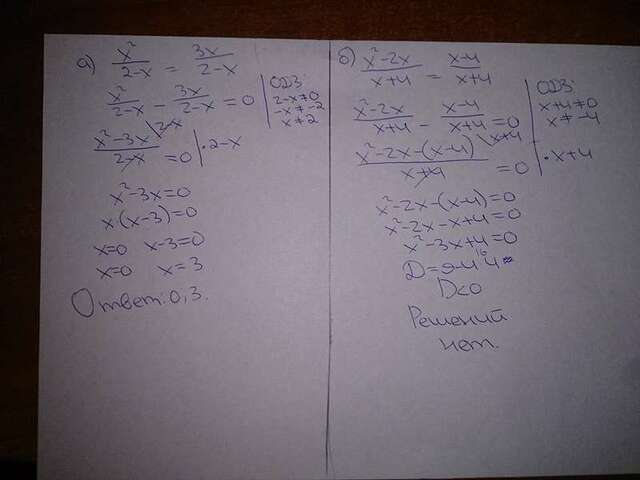 а) x²/(2-x) = 3x/(2-x)
x²/(2-x) - 3x/(2-x) = 0
ОДЗ:
2-x≠0
-x≠-2
x≠2
(x²-3x)/(2-x) \2-x = 0 | ·2-x
x²-3x=0
x·(x-3)=0
x=0 x-3=0
x=0 x=3
Ответ: 0,3.
б) (x²-2x)/(x+4) = (x-4)/(x+4)
(x²-2x)/(x+4) - (x-4)/(x+4) = 0
ОДЗ:
x+4≠0
x≠-4
(x²-2x-(x-4))/(x+4) \x+4 = 0 | ·x+4
x²-2x-(x-4)=0
x²-2x-x+4=0
x²-3x+4=0
D<0
Решений
нет.